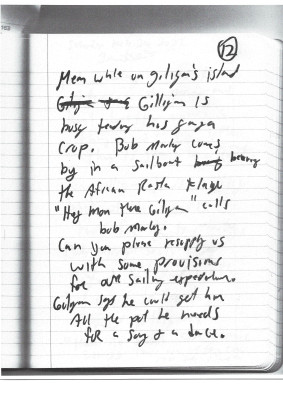 12
Mean while on giligan's island
Gilligan is
busy tending his ganja
crop. Bob Marley comes
by in a sailboat bearing
the African Rasta Flage
"Hey mon there Giligan" calls
bob marley.
Can you please resupply us
with some provisions
for our sailing expedition.
Giligan says he could get him
All the pot he needs
for a song & a dance.